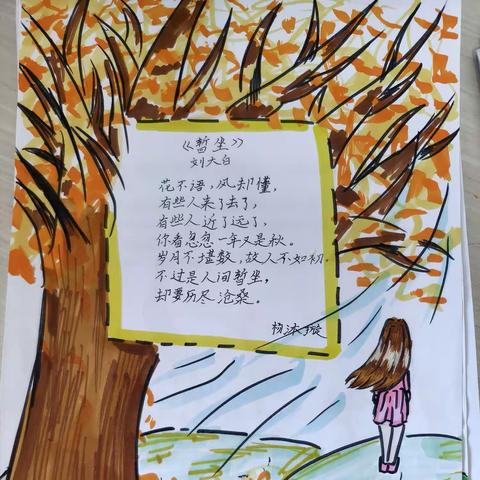 《暂坐》
刘大白
花不语，风却懂，
有些人来了去了，
有些人近了远了，
你看忽忽一年又是秋。
岁月不堪数，故人不如初。
不过是人间暂坐，
却要历尽沧桑。